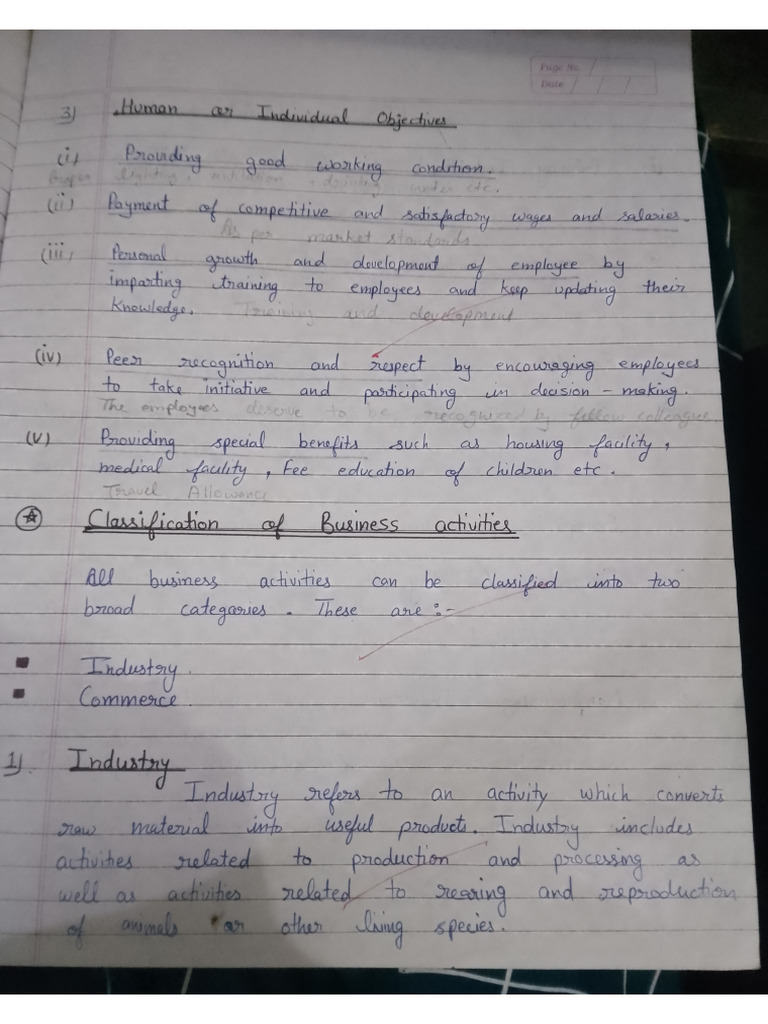 Page No.
Date
3) Human or Individual Objectives
(i) Providing good working condition.
lighting, drinking water etc.
(ii) Payment of competitive and satisfactory wages and salaries.
As per market standards
(iii) Personal growth and development of employee by
imparting training to employees and keep updating their
Knowledge. Training and development
(iv) Peer recognition and respect by encouraging employees
to take initiative and participating in decision - making.
The employees deserve to be recognized by fellow colleague
(v) Providing special benefits such as housing facility,
medical facility, Fee education of children etc.
Travel Allowance
Classification of Business activities
All business activities can be classified into two
broad categories. These are :-
Industry.
Commerce.
1). Industry
Industry refers to an activity which converts
raw material into useful products. Industry includes
activities related to production and processing as
well as activities related to rearing and reproduction
of animals or other living species.